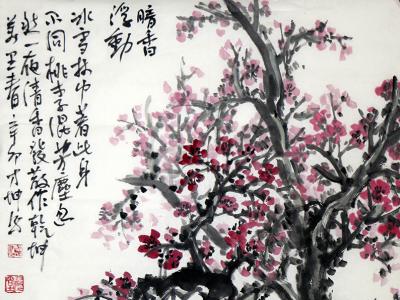 暗香
浮動
冰雪林中著此身
不同桃李混芳塵忽
然一夜清香發散作乾坤
萬里春 辛卯才坤